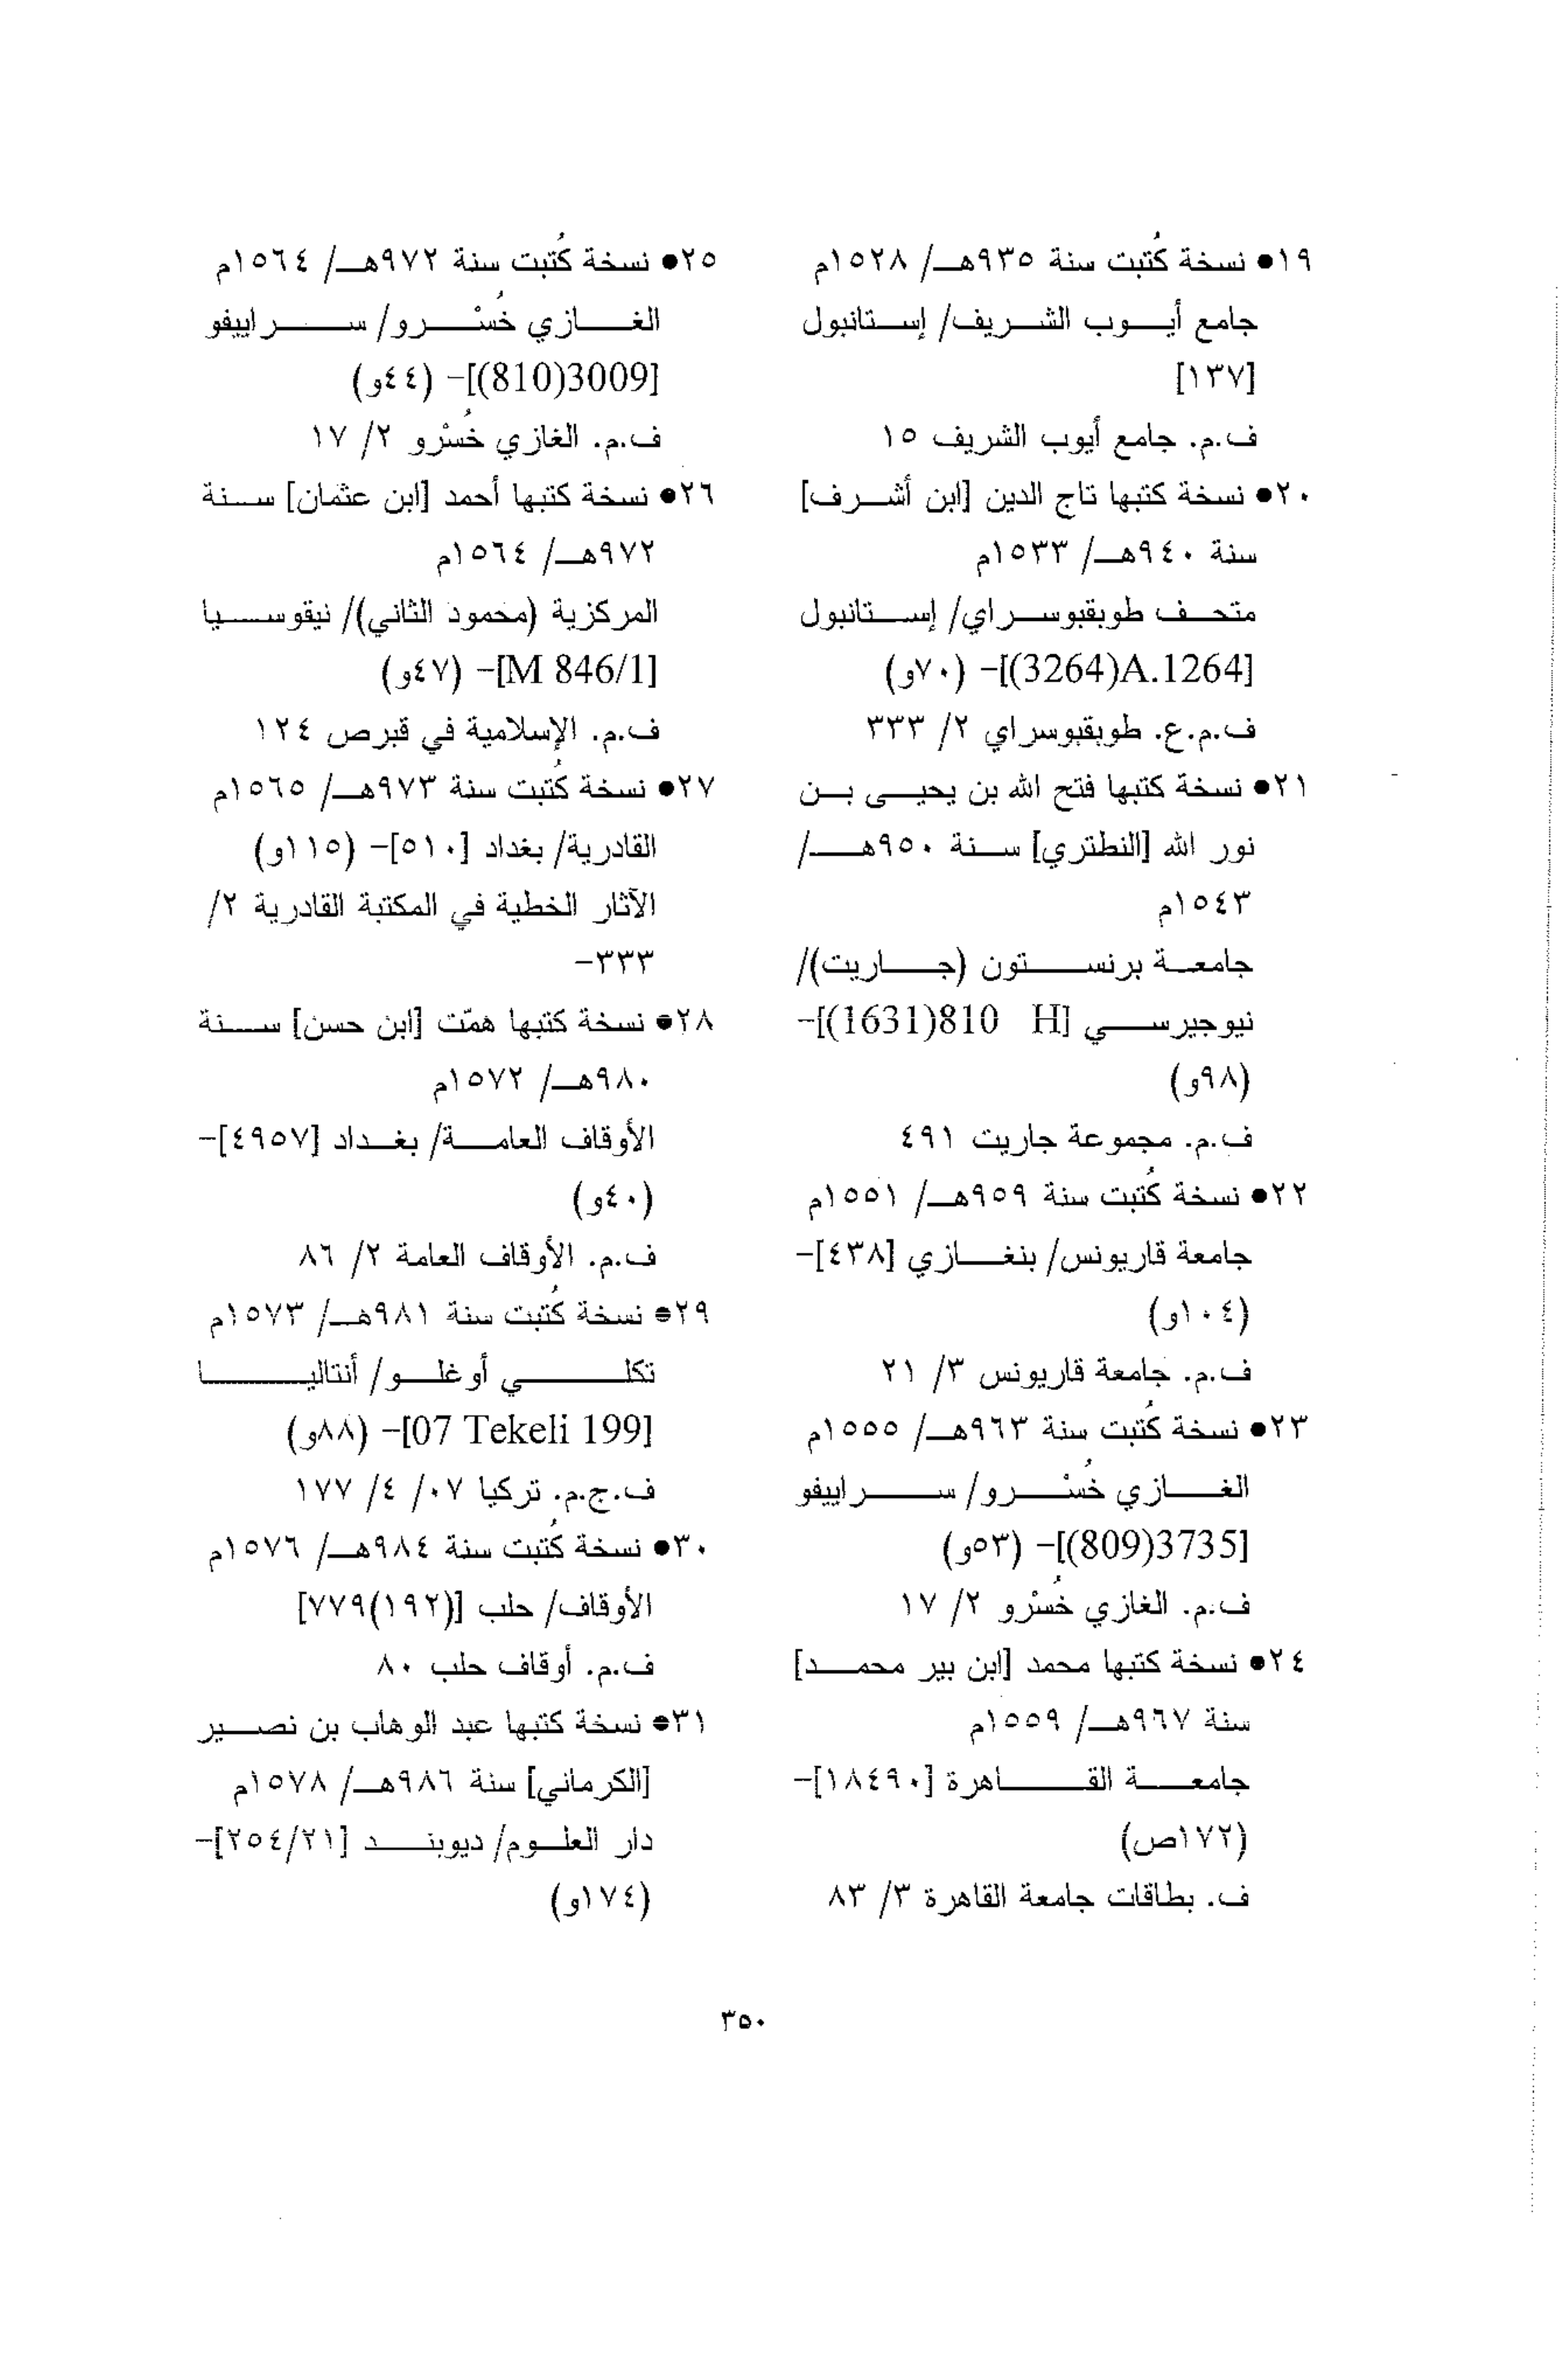 ١٩● نسخة كُتبت سنة ٩٣٥هـ/ ١٥٢٨م
جامع أيوب الشريف/ إستانبول
[١٣٧]
ف.م. جامع أيوب الشريف ١٥
٢٠● نسخة كتبها تاج الدين [ابن أشرف]
سنة ٩٤٠هـ/ ١٥٣٣م
متحف طوبقبوسراي/ إستانبول
[A.1264(3264)]- (٧٠و)
ف.م.ع. طوبقبوسراي ٢/ ٣٣٣
٢١● نسخة كتبها فتح الله بن يحيى بن
نور الله [النطتري] سنة ٩٥٠هـ/
١٥٤٣م
جامعة برنستون (جاريت)/
نيوجيرسي [H 810(1631)]-
(٩٨و)
ف.م. مجموعة جاريت ٤٩١
٢٢● نسخة كُتبت سنة ٩٥٩هـ/ ١٥٥١م
جامعة قاريونس/ بنغازي [٤٣٨]-
(١٠٤و)
ف.م. جامعة قاريونس ٣/ ٢١
٢٣● نسخة كُتبت سنة ٩٦٣هـ/ ١٥٥٥م
الغازي خُسْرو/ سراييفو
[3735(809)]- (٥٣و)
ف.م. الغازي خُسْرو ٢/ ١٧
٢٤● نسخة كتبها محمد [ابن بير محمد]
سنة ٩٦٧هـ/ ١٥٥٩م
جامعة القاهرة [١٨٤٩٠]-
(١٧٢ص)
ف. بطاقات جامعة القاهرة ٣/ ٨٣
٢٥● نسخة كُتبت سنة ٩٧٢هـ/ ١٥٦٤م
الغازي خُسْرو/ سراييفو
[3009(810)]- (٤٤و)
ف.م. الغازي خُسْرو ٢/ ١٧
٢٦● نسخة كتبها أحمد [ابن عثمان] سنة
٩٧٢هـ/ ١٥٦٤م
المركزية (محمود الثاني)/ نيقوسيا
[M 846/1]- (٤٧و)
ف.م. الإسلامية في قبرص ١٢٤
٢٧● نسخة كُتبت سنة ٩٧٣هـ/ ١٥٦٥م
القادرية/ بغداد [٥١٠]- (١١٥و)
الآثار الخطية في المكتبة القادرية ٢/
٣٣٣-
٢٨● نسخة كتبها همّت [ابن حسن] سنة
٩٨٠هـ/ ١٥٧٢م
الأوقاف العامة/ بغداد [٤٩٥٧]-
(٤٠و)
ف.م. الأوقاف العامة ٢/ ٨٦
٢٩● نسخة كُتبت سنة ٩٨١هـ/ ١٥٧٣م
تكلي أوغلو/ أنتاليا
[07 Tekeli 199]- (٨٨و)
ف.ج.م. تركيا ٠٧/ ٤/ ١٧٧
٣٠● نسخة كُتبت سنة ٩٨٤هـ/ ١٥٧٦م
الأوقاف/ حلب [(١٩٢)٧٧٩]
ف.م. أوقاف حلب ٨٠
٣١● نسخة كتبها عبد الوهاب بن نصير
[الكرماني] سنة ٩٨٦هـ/ ١٥٧٨م
دار العلوم/ ديوبند [٢٥٤/٢١]-
(١٧٤و)
٣٥٠